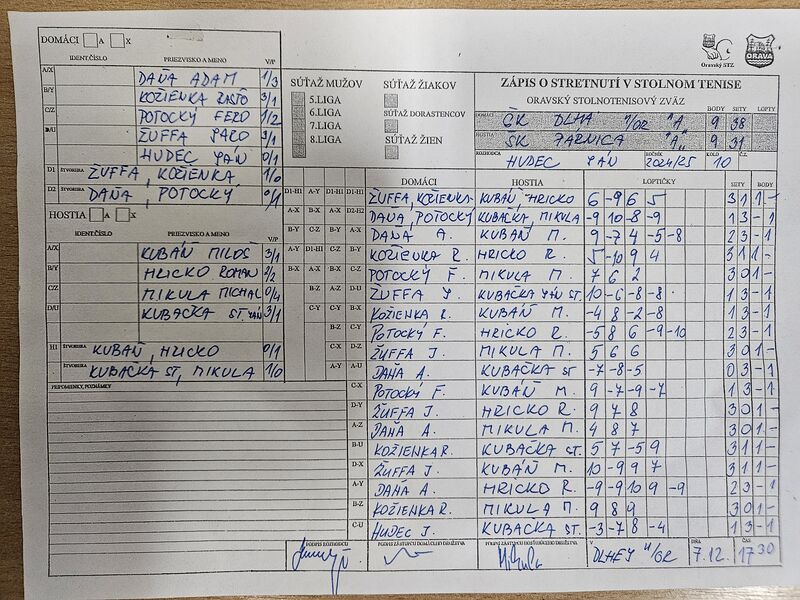 DOMÁCI A X
IDENT.ČÍSLO PRIEZVISKO A MENO V/P
A/X DAŇA ADAM 1/3
B/Y KOŽIENKA RASŤO 3/1
C/Z POTOCKÝ FERO 1/2
D/U ŽUFFA JARO 3/1
HUDEC JÁN 0/1
D1 ŠTVORHRA ŽUFFA, KOŽIENKA 1/0
D2 ŠTVORHRA DAŇA, POTOCKÝ 0/1
HOSTIA A X
IDENT.ČÍSLO PRIEZVISKO A MENO V/P
A/X KUBÁŇ MILOŠ 3/1
B/Y HRICKO ROMAN 2/2
C/Z MIKULA MICHAL 0/4
D/U KUBAČKA ST. JÁN 3/1
H1 ŠTVORHRA KUBÁŇ, HRICKO 0/1
ŠTVORHRA KUBAČKA ST, MIKULA 1/0
PRIPOMIENKY, POZNÁMKY
SÚŤAŽ MUŽOV
5.LIGA
6.LIGA
7.LIGA
8.LIGA
SÚŤAŽ ŽIAKOV
SÚŤAŽ DORASTENCOV
SÚŤAŽ ŽIEN
Oravský STZ
ORAVA
ZÁPIS O STRETNUTÍ V STOLNOM TENISE
ORAVSKÝ STOLNOTENISOVÝ ZVÄZ
BODY SETY LOPTY
DOMÁCI ČK DLHÁ N/OR "A" 9 38
HOSTIA ŠK ZÁBIEDOVO
ROZHODCA HUDEC JÁN 2024/25 KOLO 10 Č.Z.
DOMÁCI HOSTIA LOPTIČKY SETY BODY
ŽUFFA, KOŽIENKA KUBÁŇ, HRICKO 6 -9 6 5 3 1 1 -
DAŇA, POTOCKÝ KUBAČKA, MIKULA -9 10 -8 -9 1 3 - 1
DAŇA A. KUBÁŇ M. 9 -7 4 -5 -8 2 3 - 1
KOŽIENKA R. HRICKO R. 5 -10 9 4 3 1 1 -
POTOCKÝ F. MIKULA M. 7 6 2 3 0 1 -
ŽUFFA J. KUBAČKA JÁN ST. 10 -6 -8 -8 1 3 - 1
KOŽIENKA R. KUBÁŇ M. -4 8 -2 -8 1 3 - 1
POTOCKÝ F. HRICKO R. -5 8 6 -9 -10 2 3 - 1
ŽUFFA J. MIKULA M. 5 6 6 3 0 1 -
DAŇA A. KUBAČKA ST -7 -8 -5 0 3 - 1
POTOCKÝ F. KUBÁŇ M. 9 -7 -9 -7 1 3 - 1
ŽUFFA J. HRICKO R. 9 7 8 3 0 1 -
DAŇA A. MIKULA M. 4 8 7 3 0 1 -
KOŽIENKA R. KUBAČKA ST. 5 7 -5 9 3 1 1 -
ŽUFFA J. KUBÁŇ M. 10 -9 9 7 3 1 1 -
DAŇA A. HRICKO R. -9 -9 10 9 -9 2 3 - 1
KOŽIENKA R. MIKULA M. 9 8 9 3 0 1 -
HUDEC J. KUBAČKA ST. -3 -7 8 -4 1 3 - 1
PODPIS ROZHODCU PODPIS ZÁSTUPCU DOMÁCEHO DRUŽSTVA PODPIS ZÁSTUPCU HOSŤUJÚCEHO DRUŽSTVA V DLHEJ N/OR DŇA 7.12. ČAS 17 30